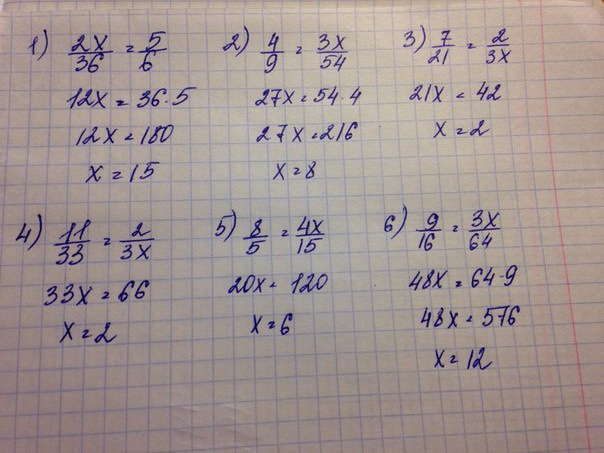 1) 2x/36 = 5/6
12x = 36·5
12x = 180
x = 15
2) 4/9 = 3x/54
27x = 54·4
27x = 216
x = 8
3) 7/21 = 2/3x
21x = 42
x = 2
4) 11/33 = 2/3x
33x = 66
x = 2
5) 8/5 = 4x/15
20x = 120
x = 6
6) 9/16 = 3x/64
48x = 64·9
48x = 576
x = 12